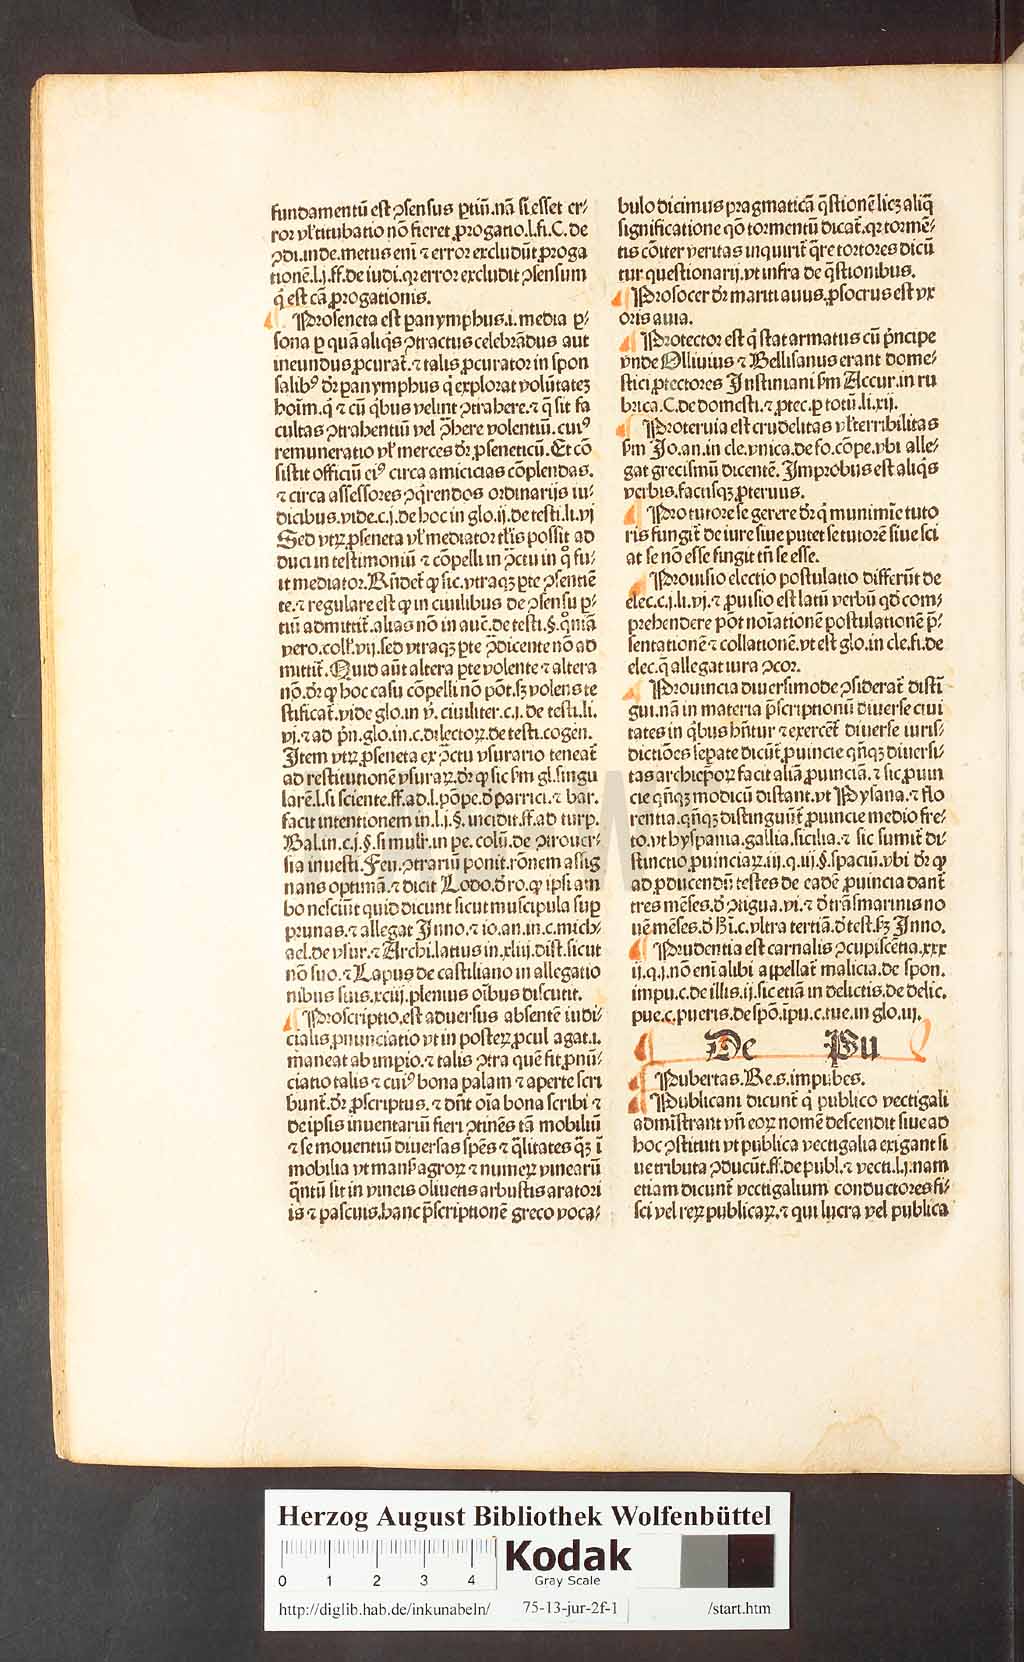 fundamentū est ꝯsensus ꝑtiū.nā si esset er⸗
ror vl' titubatio nō fieret ꝓrogatio.l.fi.C. de
ꝯdi.inde.metus eni᷑ ⁊ error excludūt ꝓroga
tionē.l.j.ff.de iudi.qꝛ error excludit ꝯsensum
q᷑ est cā ꝓrogationis.
Proseneta est ꝑanymphus.i.media ꝑ⸗
sona ꝑ quā aliq̇s ꝯtractus celebrādus aut
ineundus ꝓcurat᷑.⁊ talis ꝓcurator in spon
salibꝰ dr̄ ꝑanymphus q̇ explorat volūtateꝫ
hoīm.q̇ ⁊ cū q̇bus velint ꝯtrahere.⁊ q̄ sit fa
cultas ꝯtrahentiū vel ꝯ̄here volentiū.cuiꝰ
remuneratio vl' merces dr̄.ꝓseneticū.Et cō
sistit officiū eiꝰ circa amicicias cōplendas.
⁊ circa assessores ꝯq̇rendos ordinarijs iu⸗
dicibus.vide.c.j.de hoc in glo.ij.de testi.li.vj
Sed vtꝝ ꝓseneta vl' mediator tl'is possit ad
duci in testimoniū ⁊ cōpelli in ꝯ̄ctu in q̊ fu⸗
it mediator.Rn̄det᷑ ꝙ sic.vtraqꝫ ꝑte ꝯsentiē
te.⁊ regulare est ꝙ in ciuilibus de ꝯsensu ꝑ⸗
tiū admittit᷑.alias nō in aut̄.de testi.§.qm̄
vero.coll'.vij.sed vtraqꝫ ꝑte ꝯ̄dicente nō ad
mittit᷑.Quid aūt altera ꝑte volente ⁊ altera
nō.dr̄ ꝙ hoc casu cōpelli nō pōt.sꝫ volens te
stificat᷑.vide glo.in v̄. ciuiliter.c.j. de testi.li.
vj.⁊ ad pn̄.glo.in.c.dilectoꝝ.de testi.cogen.
Item vtꝝ ꝓseneta ex ꝯ̄ctu vsurario teneat᷑
ad restitutionē vsuraꝝ.dr̄ ꝙ sic ẜm gl.singu
larē.l.si sciente.ff.ad.l.pōpe.d̄ parrici.⁊ bar.
facit intentionem in.l.j.§. incidit.ff.ad turp.
Bal.in.c.j.§.si mulr̄.in pe. colū.de ꝯtrouer⸗
sia inuesti.Feu.ꝯtrariū ponit.rōnem assig
nans optimā.⁊ dicit Lodo.d̄ ro.ꝙ ipsi am
bo nesciūt quid dicunt sicut muscipula suꝑ
prunas.⁊ allegat Inno.⁊ io.an.in.c.mich⸗
ael.de vsur.⁊ Archi.latius in.xliij.dist.sicut
nō suo.⁊ Lapus de castiliano in allegatio
nibus suis.xciij.plenius oībus discutit.
Proscriptio.est aduersus absentē iudi⸗
cialis ꝓnunciatio vt in posteꝝ ꝓcul agat.i.
maneat ab imꝑio.⁊ talis ꝯtra quē fit ꝓnū⸗
ciatio talis ⁊ cuiꝰ bona palam ⁊ aperte scri
bunt᷑.dr̄ ꝓscriptus.⁊ dn̄t oīa bona scribi ⁊
de ipsis inuentariū fieri ꝯtinēs tā mobiliū
⁊ se mouentiū diuersas spēs ⁊ q̄litates qꝫ ī
mobilia vt mans' agroꝝ ⁊ numeꝝ vinearū
q̄ntū sit in vineis oliuetis arbustis aratori
is ⁊ pascuis.hanc p̄scriptionē greco voca⸗
bulo dicimus pragmaticā q̄stionē licꝫ aliq̄
significatione qd̄ tormentū dicat᷑.qꝛ tormē⸗
tis cōiter veritas inquirit᷑ q̄re tortores dicū
tur questionarij.vt infra de q̄stionibus.
Prosocer dr̄ mariti auus.ꝓsocrus est vx
oris auia.
Protector est q̇ stat armatus cū pn̄cipe
vnde Olliuius ⁊ Bellisanus erant dome⸗
stici ꝓtectores Instiniani ẜm Accur.in ru
brica.C.de domesti.⁊ ꝓtec.ꝑ totū.li.xij.
Proteruia est crudelitas vl' terribilitas
ẜm Jo.an.in cle.vnica.de fo.cōpe.vbi alle⸗
gat grecismū dicentē. Improbus est aliq̇s
verbis.factisqꝫ ꝓteruus.
Pro tutore se gerere dr̄ q̇ munimīe tuto
ris fungit᷑ de iure siue putet se tutorē siue sci
at se nō esse fungit tn̄ se esse.
Prouisio electio postulatio differūt de
elec.c.j.li.vj.⁊ ꝓuisio est latū verbū qd̄ com⸗
prehendere pōt noīationē postulationē p̄⸗
sentationē ⁊ collationē.vt est glo.in cle.fi.de
elec.q̄ allegat iura ꝯcor.
Prouincia diuersimode ꝯsiderat᷑ disti᷑
gui.nā in materia p̄scriptionū diuerse ciui
tates in q̇bus hn̄tur ⁊ exercēt᷑ diuerse iuris⸗
dictiōes sepate dicūt᷑ ꝓuincie qn̄qꝫ diuersi⸗
tas archiep̄oꝝ facit aliā ꝓuinciā.⁊ sic ꝓuin
cie qn̄qꝫ modicū distant.vt Pysana.⁊ flo
rentia.qn̄qꝫ distinguūt᷑ ꝓuincie medio fre⸗
to.vt hyspania.gallia.sicilia.⁊ sic sumit᷑ di⸗
stinctio ꝓuinciaꝝ.iij.q.iij.§.spaciū.vbi dr̄ ꝙ
ad ꝓducendū testes de eadē ꝓuincia dant᷑
tres mēses.d̄ ꝯtigua.vj.⁊ d̄ trāsmarinis no
uē mēses.d̄ h̄ i.c.vltra tertiā.d̄ test.ẜꝫ Inno.
Prudentia est carnalis ꝯcupiscētia.xxx
ij.q.j.nō eni alibi appellat᷑ malicia.de spon.
impu.c.de illis.ij.sic etiā in delictis.de delic.
pue.c.pueris.de spō.īpu.c.tue.in glo.iij.
De Pu
Pubertas.Re.s.impubes.
Publicani dicunt᷑ q̇ publico vectigali
admīstrant vn̄ eoꝝ nomē descendit siue ad
hoc ꝯstituti vt publica vectigalia exigant si
ue tributa ꝯducūt.ff.de publ.⁊ vecti.l.j.nam
etiam dicunt᷑ vectigalium conductores fi⸗
sci vel reꝝ publicaꝝ.⁊ qui lucra vel publica
Herzog August Bibliothek Wolfenbüttel
0 1 2 3 4
Kodak
Gray Scale
http://diglib.hab.de/inkunabeln/ 75-13-jur-2f-1 /start.htm